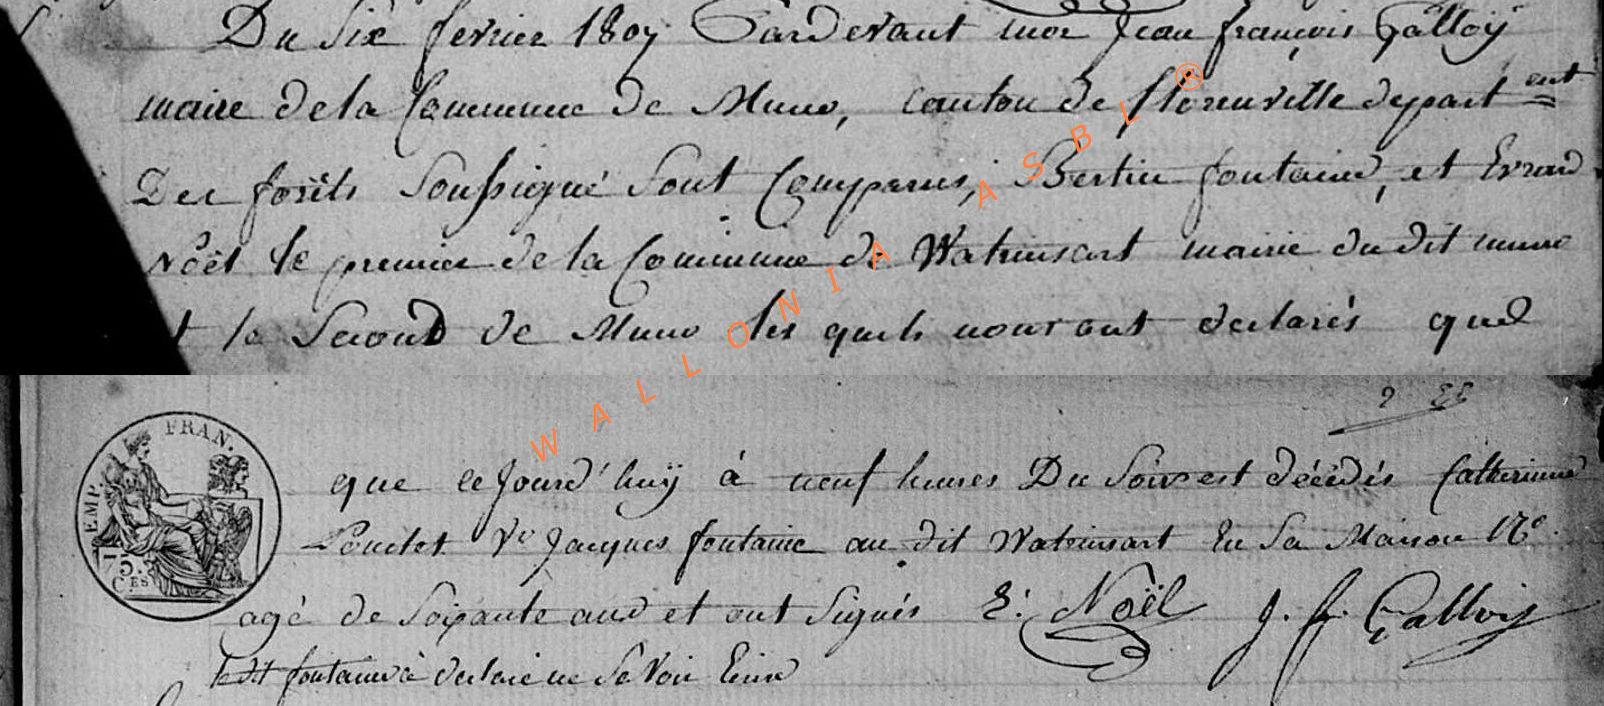 Du Six fevrier 1807 Pardevant moi Jean françois Galloÿ
maire de la Commune de Muno, canton de florenville depart ent
Des forêts Soussigné Sont Comparus, Bertin fontaine, et Evrard
Noël le premier de la Commune de Watrinsart mairie du dit muno
le Second de Muno les quels nous ont declarés que
WALLONIA ASBL ®
2
EMP. FRAN.
75. CES
que ce Jourd'huÿ à neuf heures Du Soir est décédés Catherinne
Ve Jacques fontaine au dit Watrinsart En Sa Maison
agé de Soixante ans et ont Signés E: Noël J. f. Galloiy
ledit fontaine à declaré ne Savoir Ecrire